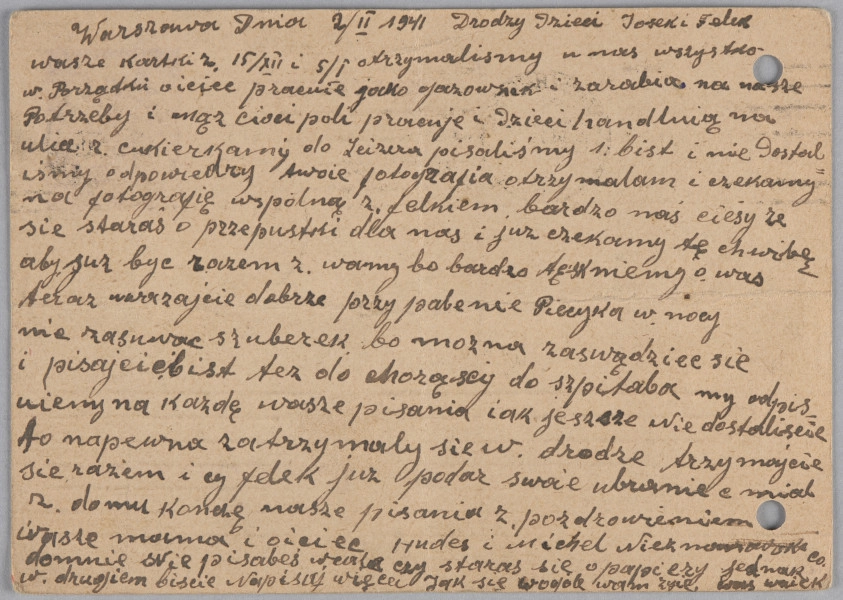 Warszawa Dnia 2/II 1941 Drodzy Dzieci Josek i Felek
wasze kartki z. 15/XII i 5/I otrzymaliśmy u nas wszystko
w. Porządki ojciec pracuje jako gazownik i zarabia na nasze
Potrzeby i mąż cioci poli pracuje i Dzieci handluią na
ulic z. cukierkamy do pisaliśmy 1. list i nie Dostal
iśmy odpowiedzy twoie fotografia otrzymalam i czekamy
na fotografię wspólną z. felkiem. bardzo naś ciesy że
sie staraś o przepustki dla nas i już czekamy tę chwilę
aby już byc razem z. wamy bo bardzo tęskniemy o. was
teraz uwarzajcie dobrze przy palenie Piecyka w. nocy
nie zasuwac szuberek bo można zaswądziec sie
i pisajcie list tez do do szpitala my odpis
uiemy na każdę wasze pisania iak jeszsze nie dostaliscie
to napewna zatrzymały sie w. drodze trzymajcie
sie razem i cy felek już podar swoie ubranie c mial
z. domu Kończę nasze pisania z. pozdrowieniem
wasze mama i oiciec Hudes i Michel
domnie nie pisałeś wcale czy staraś się o papiery jednak co.
w. drugiem liscie Napisaj więcei Jak się wogóle wam żyie